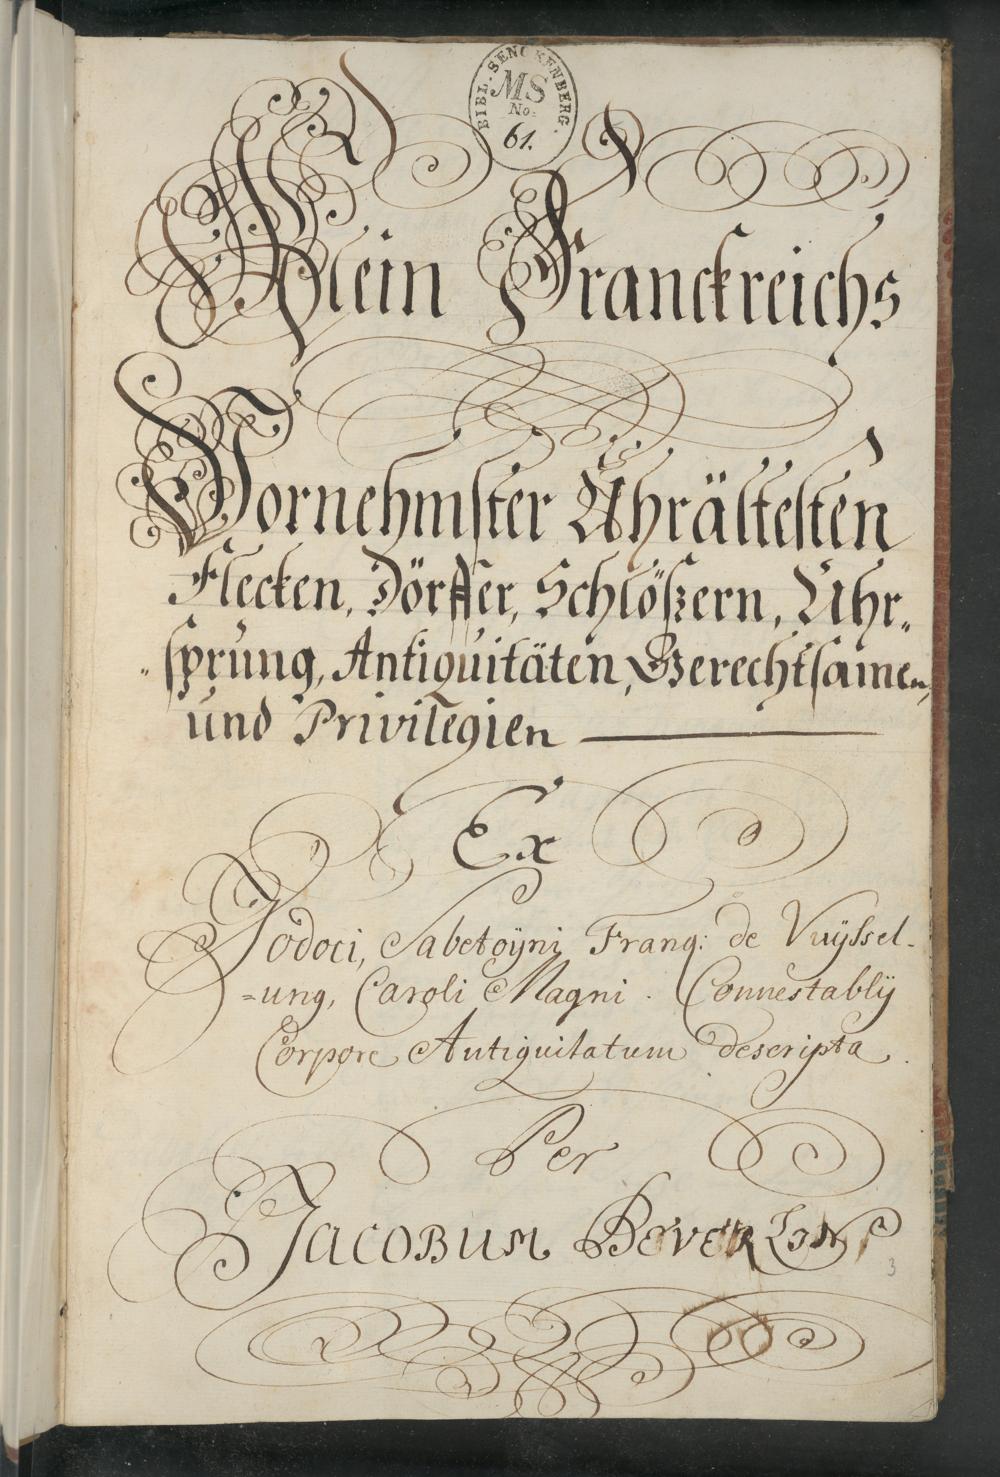 BIBL. SENCKENBERG.
MS
No.
61.
Klein Franckreichs
Vornehmster Uhrältesten
Flecken, Dörffer, Schlößern, Uhr„
„sprung, Antiquitäten, Gerechtsamen,
und Privilegien
Ex
Jodoci, Sabetoÿni Franq: de Vuÿssel-
=ung, Caroli Magni. Connestablij
Corpore Antiquitatum descripta.
Per
Jacobum Beverlin
3